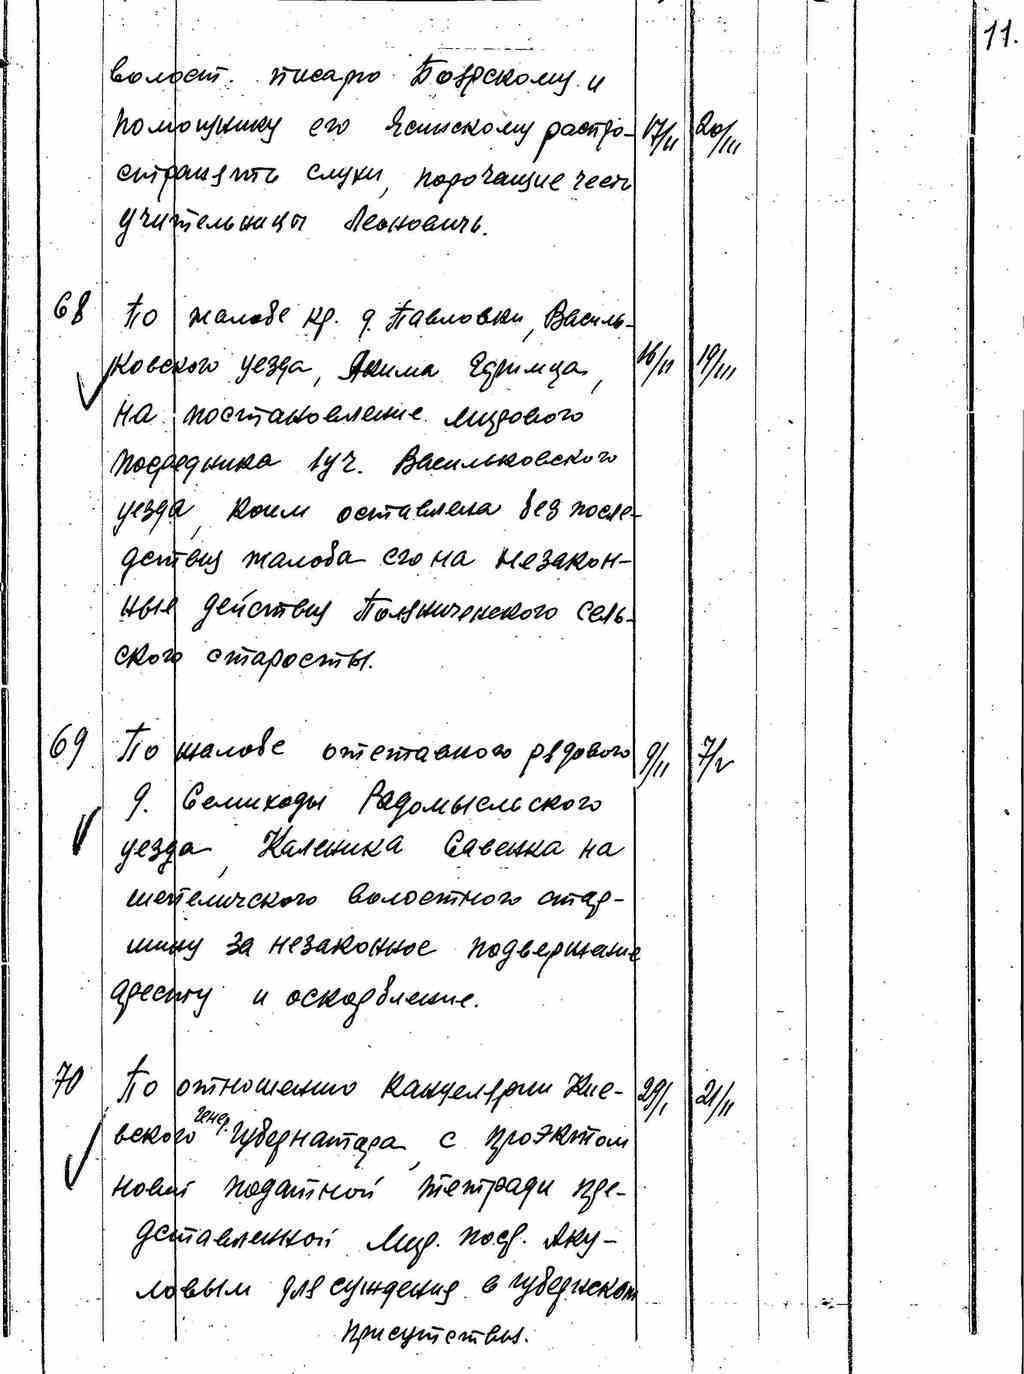 11.
волост. писарю Боярскому и
помощнику его Ясинскому распро- 17/II 20/III
странять слухи, порочащие честь
учительницы Леонович.
68 По жалобе кр. д. Павловки, Василь-
ковского уезда, Акима Ефимца, 16/II 19/III
на постановление мирового
посредника 1 уч. Васильковского
уезда, коим оставлена без после-
дствия жалоба его на незакон-
ные действия Поляниченского сель-
ского старосты.
69 По жалобе отставного рядового 9/II 7/V
д. Семиходы Радомысльского
уезда, Каленика Савенка на
шепеличского волостного стар-
шину за незаконное подвержание
аресту и оскорбление.
70 По отношению Канцелярии Кие- 29/I 21/II
вского генер. губернатора, с проэктом
новой податной тетради пре-
дставленной Мир. поср. Аку-
ловым для суждения в губернском
присутствии.